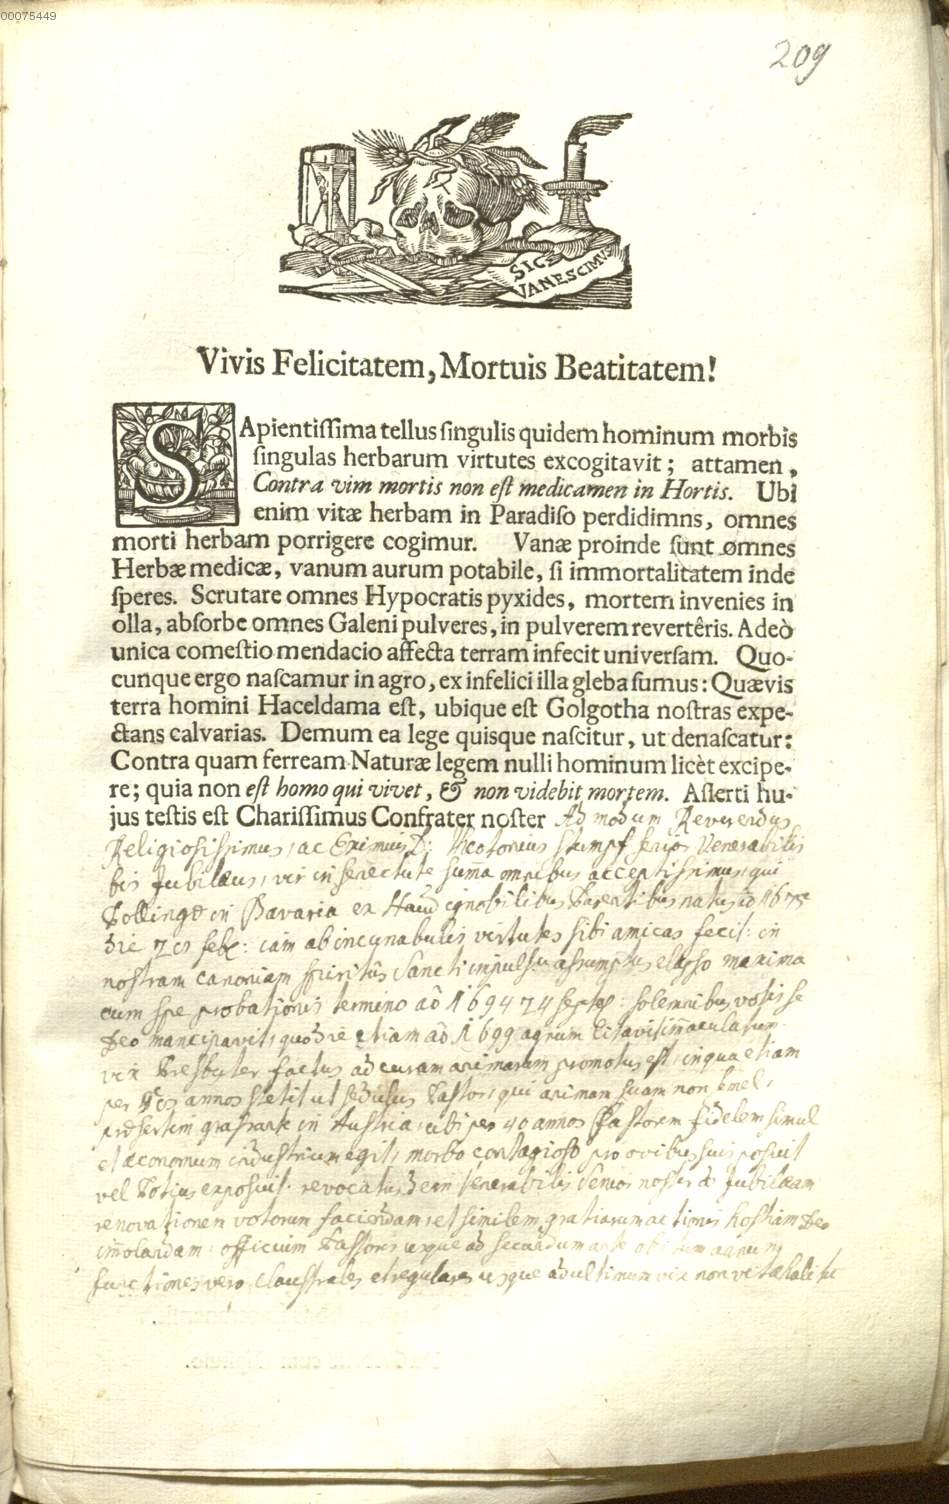 00075449
209
SIC
VANESCIMUS
Vivis Felicitatem, Mortuis Beatitatem!
SApientissima tellus singulis quidem hominum morbis
singulas herbarum virtutes excogitavit; attamen,
Contra vim mortis non est medicamen in Hortis. Ubi
enim vitæ herbam in Paradiso perdidimns, omnes
morti herbam porrigere cogimur. Vanæ proinde sunt omnes
Herbæ medicæ, vanum aurum potabile, si immortalitatem inde
speres. Scrutare omnes Hypocratis pyxides, mortem invenies in
olla, absorbe omnes Galeni pulveres, in pulverem revertêris. Adeò
unica comestio mendacio affecta terram infecit universam. Quo-
cunque ergo nascamur in agro, ex infelici illa gleba sumus: Quævis
terra homini Haceldama est, ubique est Golgotha nostras expe-
ctans calvarias. Demum ea lege quisque nascitur, ut denascatur:
Contra quam ferream Naturæ legem nulli hominum licèt excipe-
re; quia non est homo qui vivet, & non videbit mortem. Asserti hu-
jus testis est Charissimus Confrater noster Ad modum Reverendus
Religiosissimus, ac Eximius D: Stumpf senior Venerabilis
bis Jubilæus, vir in senectute summa omnibus acceptissimus, qui
Pollingæ in Bavaria ex Haud ignobilibus Parentibus natus
die 7 Feb: iam ab incunabulis virtutes sibi amicas fecit: in
nostram canoniam spiritûs Sancti impulsu assumptus elapso maxima
cum spe probationis termino aõ 1694 septemb: solemnibus votis se
Deo mancipavit, quo die etiam aõ 1699 agnum litavit immaculatum.
vix Presbyter factus ad curam animarum promotus est, in qua etiam
per annos stetit ut sedulus Pastor, qui animam suam non semel,
præsertim grassante in Austria, ubi per 40 annos Pastorem fidelem simul
et œconomum industrium egit, morbo contagioso pro ovibus suis posuit
vel Potius exposuit. revocatus dein Venerabilis Senior noster ad Jubilæam
renovationem votorum faciendam, et similem gratiarum actionis hostiam Deo
immolandam officium Pastoris usque ad secundum ante obitum annum,
functiones vero claustrales et regulares usque ad ultimum vix non vitæ halitu